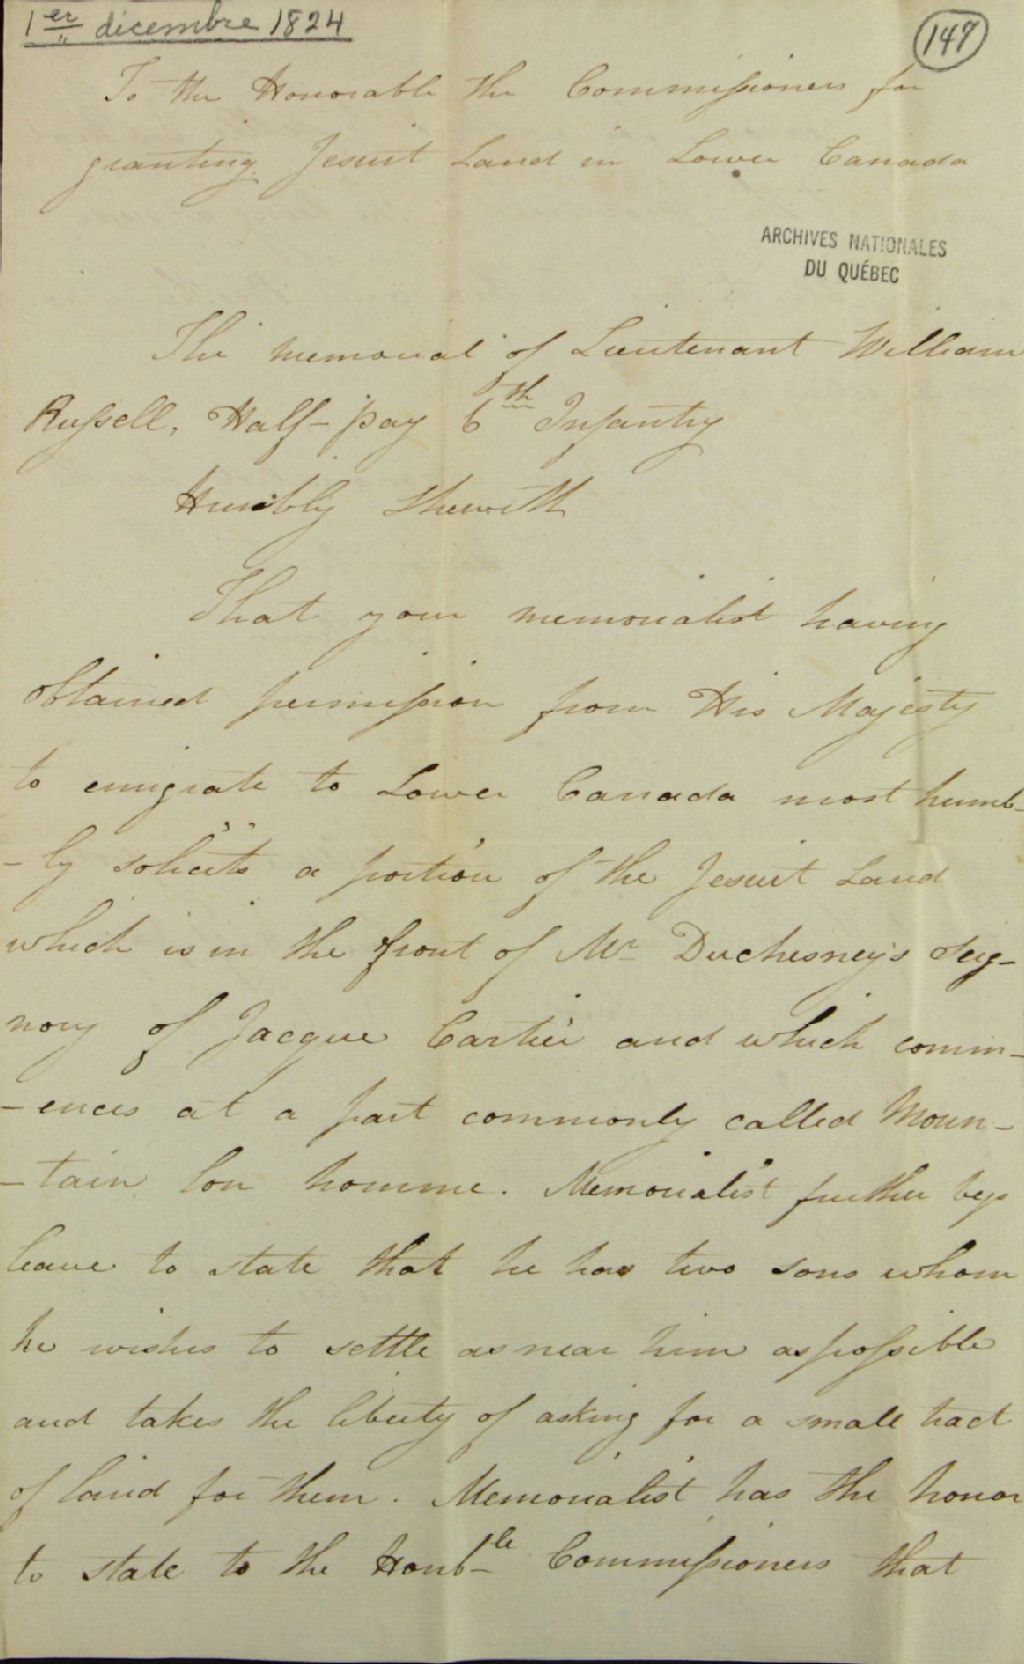 1er décembre 1824
147
To the Honorable the Commissioners for
granting Jesuit Land in Lower Canada
ARCHIVES NATIONALES
DU QUÉBEC
The memorial of Lieutenant William
Russell, Half-pay 6th Infantry
Humbly sheweth
That your memorialist having
obtained permission from His Majesty
to emigrate to Lower Canada most humb-
-ly solicits a portion of the Jesuit Land
which is in the front of Mr Duchesney's Seig-
nory of Jacque Cartier and which comm-
-ences at a part commonly called Moun-
-tain bon homme. Memorialist further begs
leave to state that he has two sons whom
he wishes to settle as near him as possible
and takes the liberty of asking for a small tract
of land for them. Memorialist has the honor
to state to the Honb-le Commissioners that